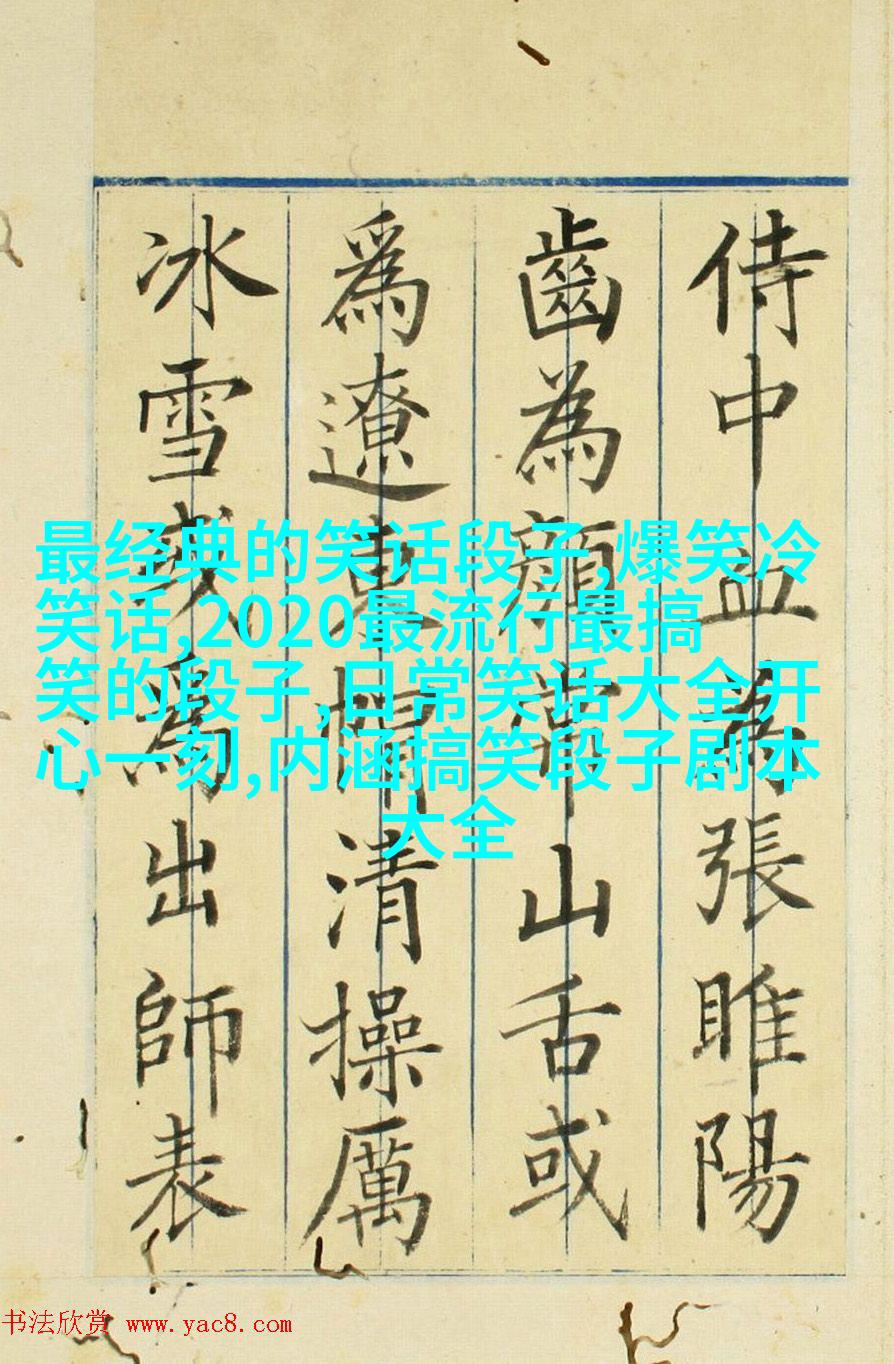 侍中血爲張睢陽
齒為顏常山舌或
爲遼東帽清操厲
冰雪或爲出師表
最经典的笑话段子,爆笑冷
笑话,2020最流行最搞
笑的段子,日常笑话大全开
心一刻,内涵搞笑段子剧本
大全
书法欣赏 www.yac8.com